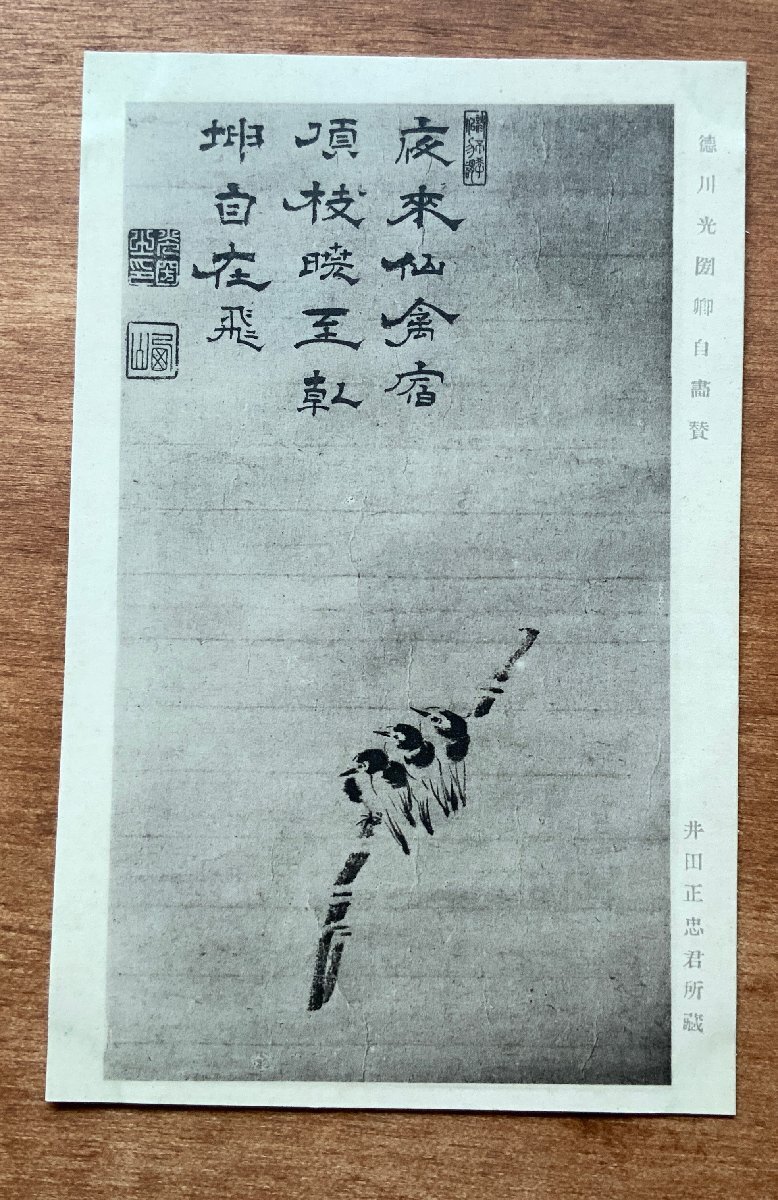 德川光圀卿自畵賛
夜來仙禽宿
頂枝曉至乹
坤自在飛
井田正忠君所藏